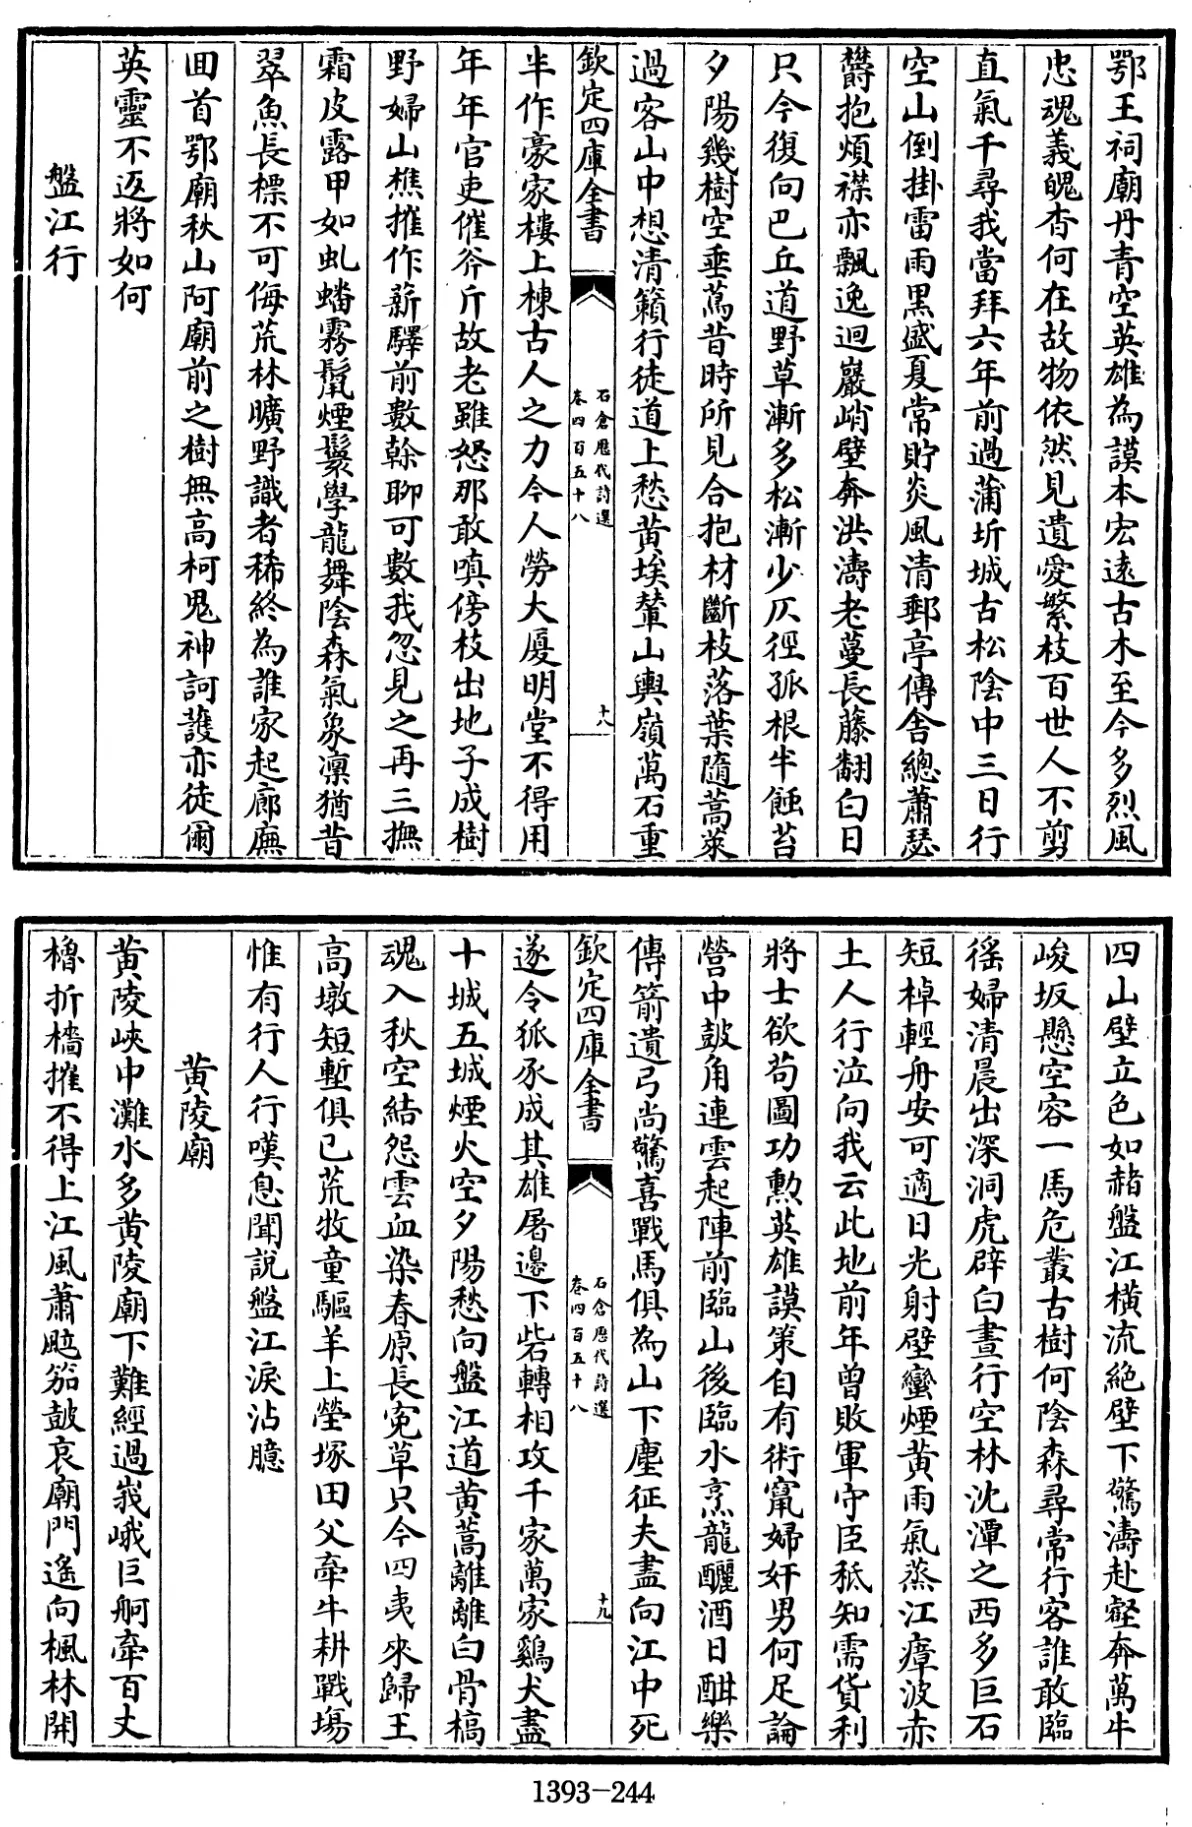 鄂王祠廟丹青空英雄為謨本宏遠古木至今多烈風
忠魂義魄杳何在故物依然見遺愛繁枝百世人不剪
直氣千尋我當拜六年前過蒲圻城古松陰中三日行
空山倒掛雷雨黑盛夏常貯炎風清郵亭傳舍總蕭瑟
欝抱煩襟亦飄逸迴巖峭壁奔洪濤老蔓長藤翻白日
只今復向巴丘道野草漸多松漸少仄徑孤根半蝕苔
夕陽幾樹空垂蔦昔時所見合抱材斷枝落葉隨蒿萊
過客山中想清籟行徒道上愁黄埃輦山輿嶺萬石重
欽定四庫全書
石倉歷代詩選
卷四百五十八
十八
半作豪家樓上棟古人之力今人勞大厦明堂不得用
年年官吏催斧斤故老雖怒那敢嗔傍枝出地子成樹
野婦山樵摧作薪驛前數榦聊可數我忽見之再三撫
霜皮露甲如虬蟠霧鬛煙鬟學龍舞陰森氣象凛猶昔
翠魚長標不可侮荒林曠野識者稀終為誰家起廊廡
囬首鄂廟秋山阿廟前之樹無高柯鬼神訶護亦徒爾
英靈不返將如何
盤江行
四山壁立色如赭盤江横流絶壁下驚濤赴壑奔萬牛
峻坂懸空容一馬危叢古樹何陰森尋常行客誰敢臨
徭婦清晨出深洞虎辟白晝行空林沈潭之西多巨石
短棹輕舟安可適日光射壁蠻煙黄雨氣蒸江瘴波赤
土人行泣向我云此地前年曾敗軍守臣秪知需貨利
將士欲苟圖功勲英雄謨策自有術甯婦奸男何足論
營中鼓角連雲起陣前臨山後臨水烹龍釃酒日酣樂
傳箭遺弓尚驚喜戰馬俱為山下塵征夫盡向江中死
欽定四庫全書
石倉歷代詩選
卷四百五十八
十九
遂令狐豕成其雄屠邊下砦轉相攻千家萬家鷄犬盡
十城五城煙火空夕陽愁向盤江道黄蒿離離白骨槁
魂入秋空結怨雲血染春原長寃草只今四夷來歸王
高墩短塹俱已荒牧童驅羊上塋塚田父牽牛耕戰塲
惟有行人行嘆息聞說盤江淚沾臆
黄陵廟
黄陵峽中灘水多黄陵廟下難經過峩峨巨舸牽百丈
櫓折檣摧不得上江風蕭颭笳鼓哀廟門遙向楓林開
1393-244